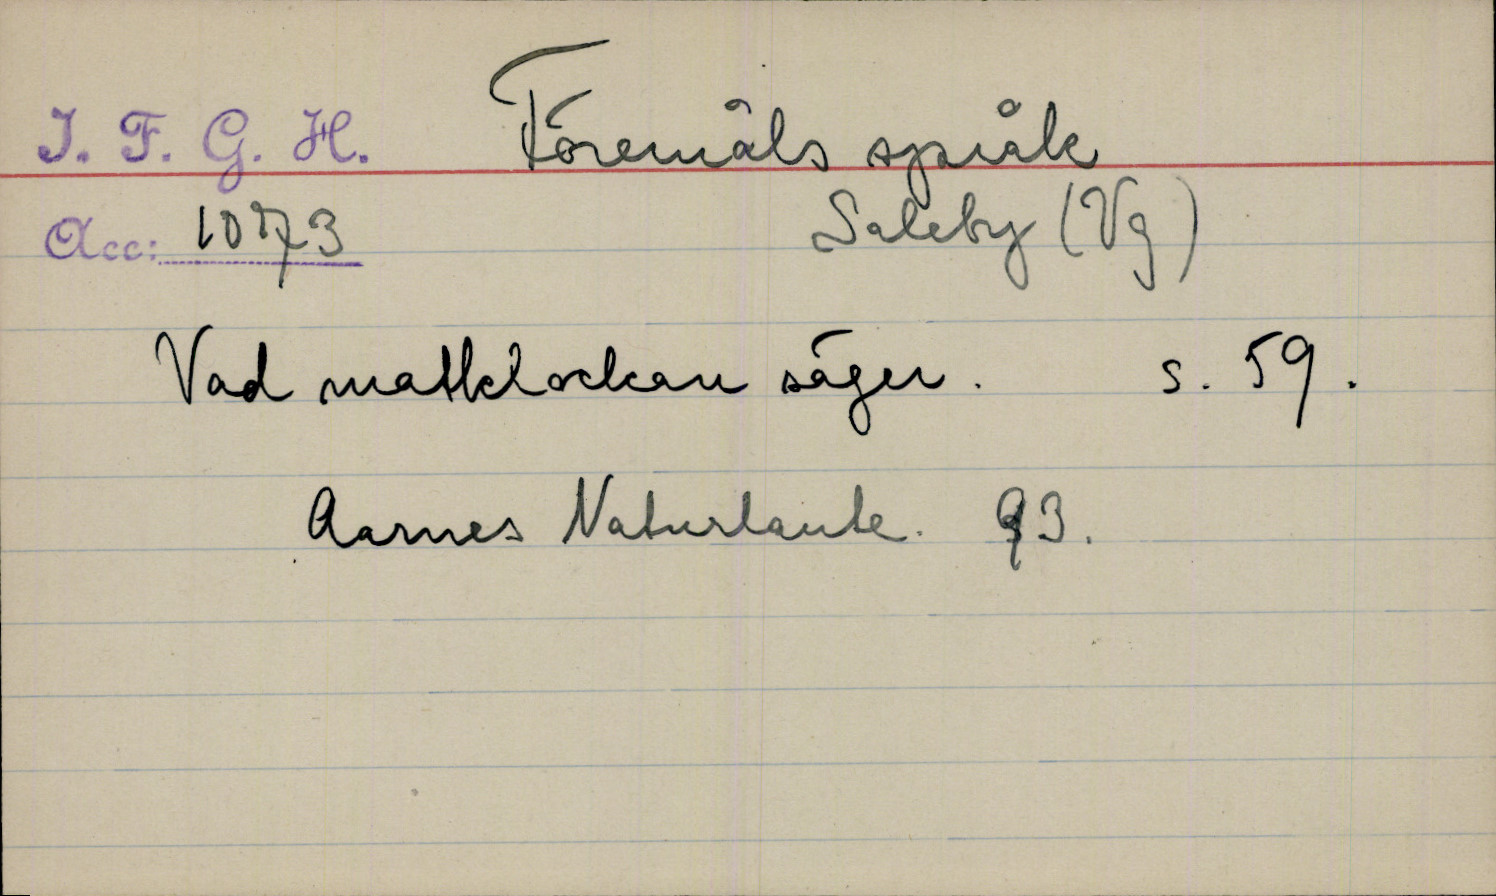 I. F. G. H. Föremåls språk
Acc: 1073 Saleby (Vg)
Vad matklockan säger. s. 59.
Aarnes Naturlaute. 93.